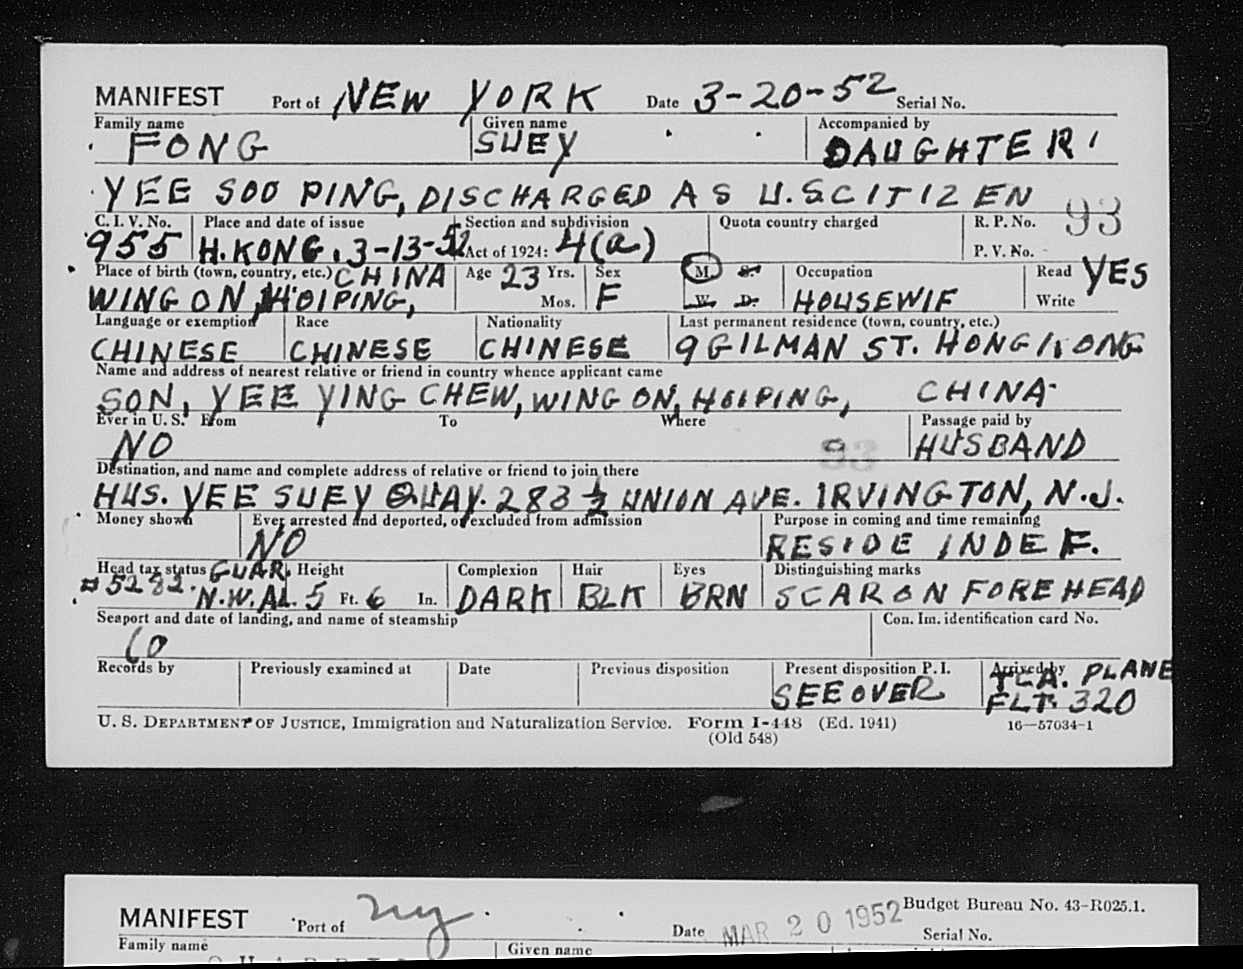 MANIFEST Port of NEW YORK Date 3-20-52 Serial No.
Family name Given name Accompanied by
FONG SUEY DAUGHTER
YEE SOO PING, DISCHARGED AS U.S CITIZEN
C. I. V. No. Place and date of issue Section and subdivision Quota country charged R. P. No. 93
955 H.KONG, 3-13-52 Act of 1924: 4(a) P. V. No.
Place of birth (town, country, etc.) CHINA Age 23 Yrs. Sex M. S. Occupation Read YES
WING ON, HOIPING, Mos. F W. D. HOUSEWIF Write
Language or exemption Race Nationality Last permanent residence (town, country, etc.)
CHINESE CHINESE CHINESE 9 GILMAN ST. HONG KONG
Name and address of nearest relative or friend in country whence applicant came
SON, YEE YING CHEW, WING ON, HOIPING, CHINA
Ever in U. S. From To Where Passage paid by
NO 93 HUSBAND
Destination, and name and complete address of relative or friend to join there
HUS. YEE SUEY QUAY. 283 ½ UNION AVE. IRVINGTON, N.J.
Money shown Ever arrested and deported, or excluded from admission Purpose in coming and time remaining
NO RESIDE INDEF.
Head tax status GUAR. Height Complexion Hair Eyes Distinguishing marks
#5282. N.W.AL. 5 Ft. 6 In. DARK BLK BRN SCAR ON FOREHEAD
Seaport and date of landing, and name of steamship Con. Im. identification card No.
Records by Previously examined at Date Previous disposition Present disposition P. I. Arrived by
SEE OVER PLANE
FLT. 320
U. S. DEPARTMENT OF JUSTICE, Immigration and Naturalization Service. Form I-448 (Ed. 1941) 16—57034-1
(Old 548)
MANIFEST Port of ny. Date MAR 20 1952 Budget Bureau No. 43-R025.1.
Serial No.
Family name Given name